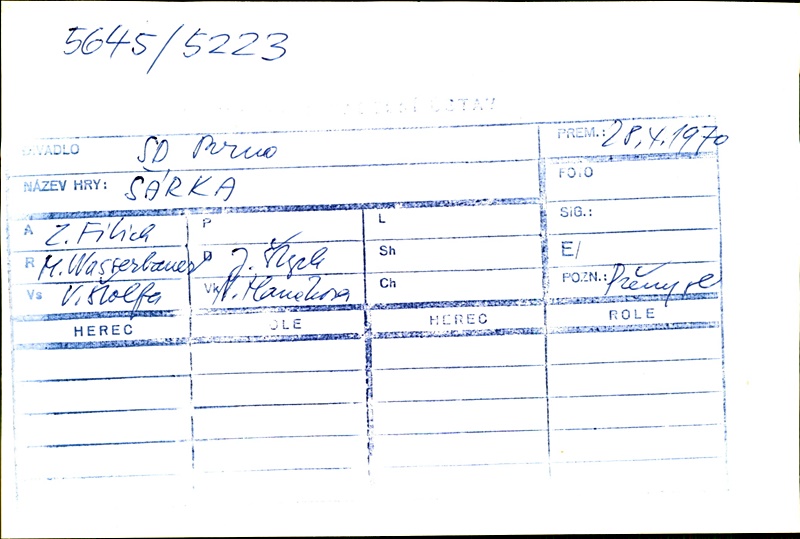 5645/5223
ÚSTAV
DIVADLO SD Brno PREM.: 28.4.1970
NÁZEV HRY: ŠÁRKA FOTO
SIG.:
A Z. Fibich P L
R M. Wasserbauer D J. Sh E/
Vs V. Štolfa Vk Ch POZN.: Přemysl
HEREC ROLE HEREC ROLE